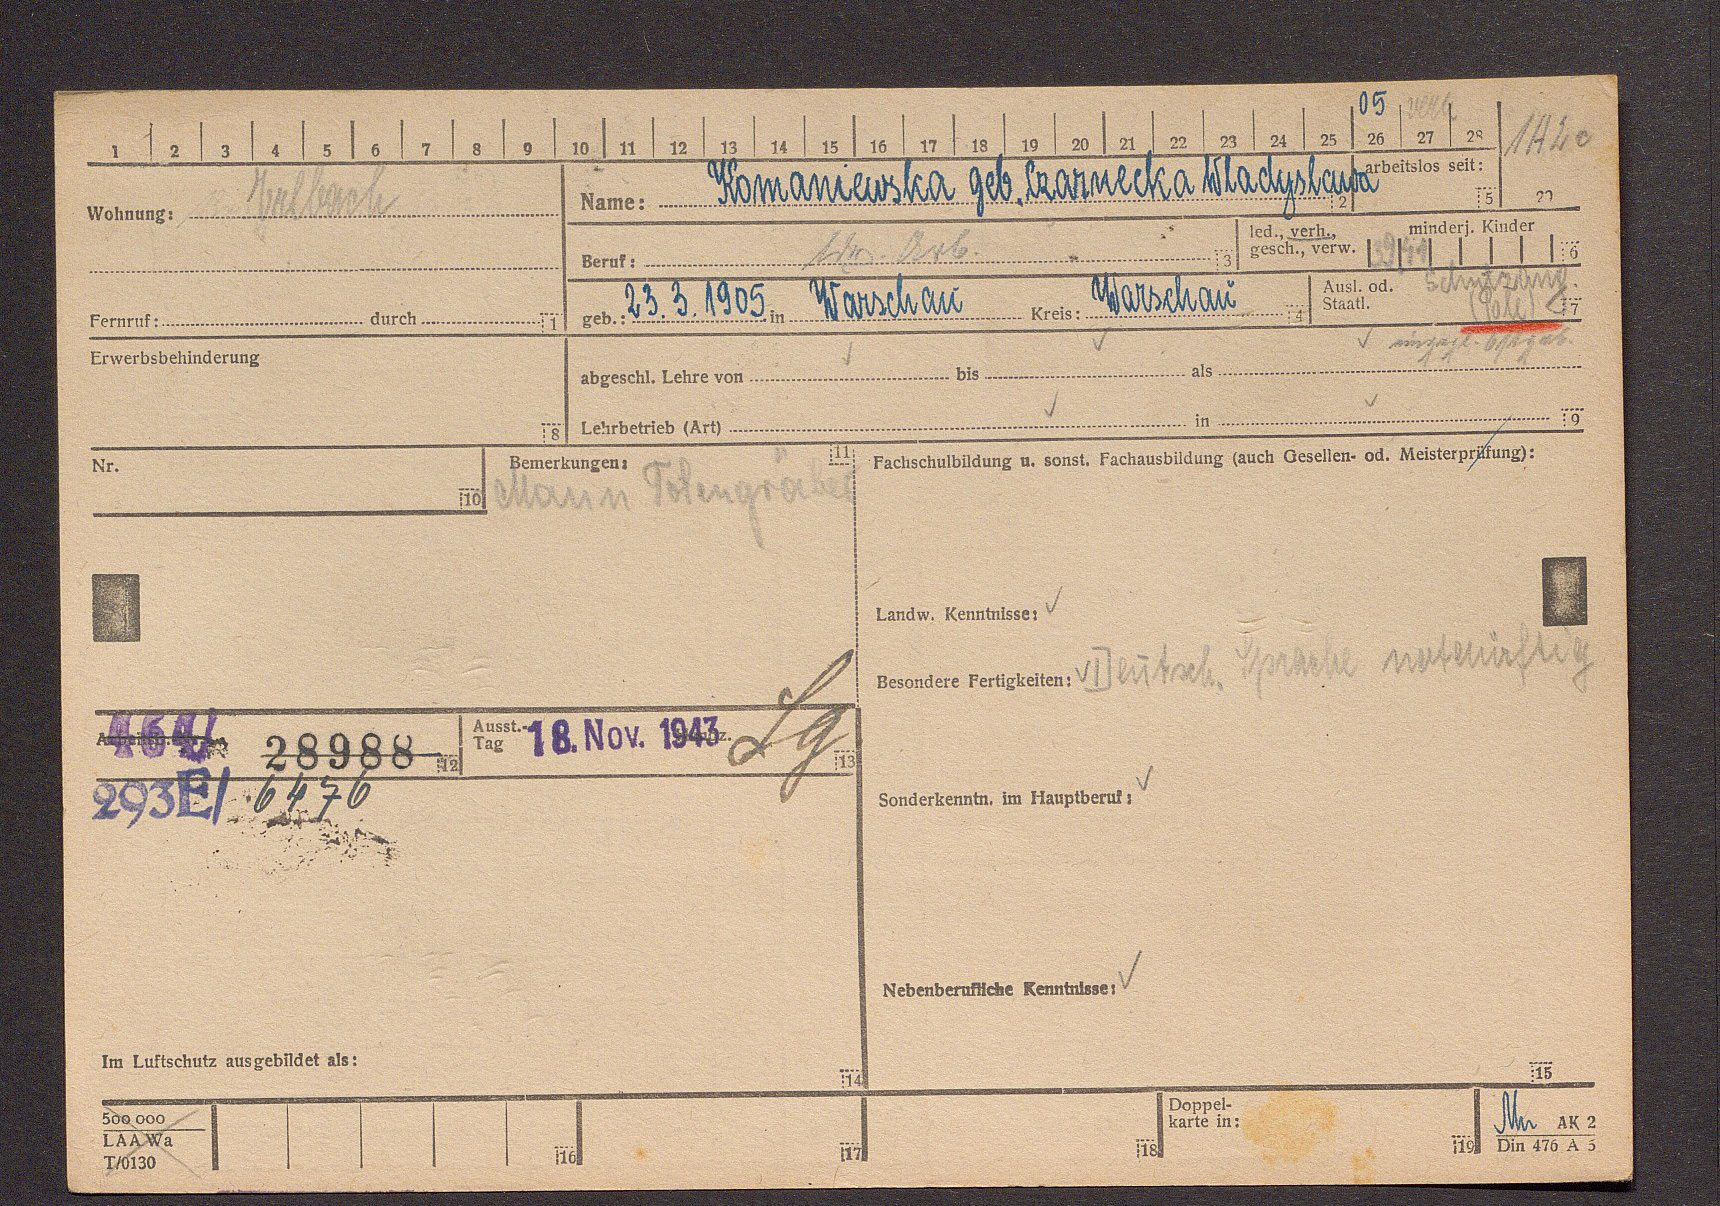 05
1 2 3 4 5 6 7 8 9 10 11 12 13 14 15 16 17 18 19 20 21 22 23 24 25 26 27 28
Wohnung:
Name: Komaniewska geb. Czarnecka Wladyslawa 2
arbeitslos seit: 5
29
Beruf: 3
led., verh., gesch., verw.
minderj. Kinder 6
Fernruf: durch 1
geb.: 23.3.1905 in Warschau Kreis: Warschau 4
Ausl. od. Staatl. (Pole) 7
Erwerbsbehinderung 8
abgeschl. Lehre von bis als
Lehrbetrieb (Art) in 9
Nr. 10
Bemerkungen: 11
Mann
Fachschulbildung u. sonst. Fachausbildung (auch Gesellen- od. Meisterprüfung):
Landw. Kenntnisse:
Besondere Fertigkeiten: Deutsch. Sprache notdürftig
464/ 28988 12
Ausst.-Tag 18. Nov. 1943 13
293E/ 6476
Sonderkenntn. im Hauptberuf:
Nebenberufliche Kenntnisse:
Im Luftschutz ausgebildet als: 14
15
500 000
LAA Wa
T/0130
16 17 18
Doppelkarte in: 19
AK 2
Din 476 A 5